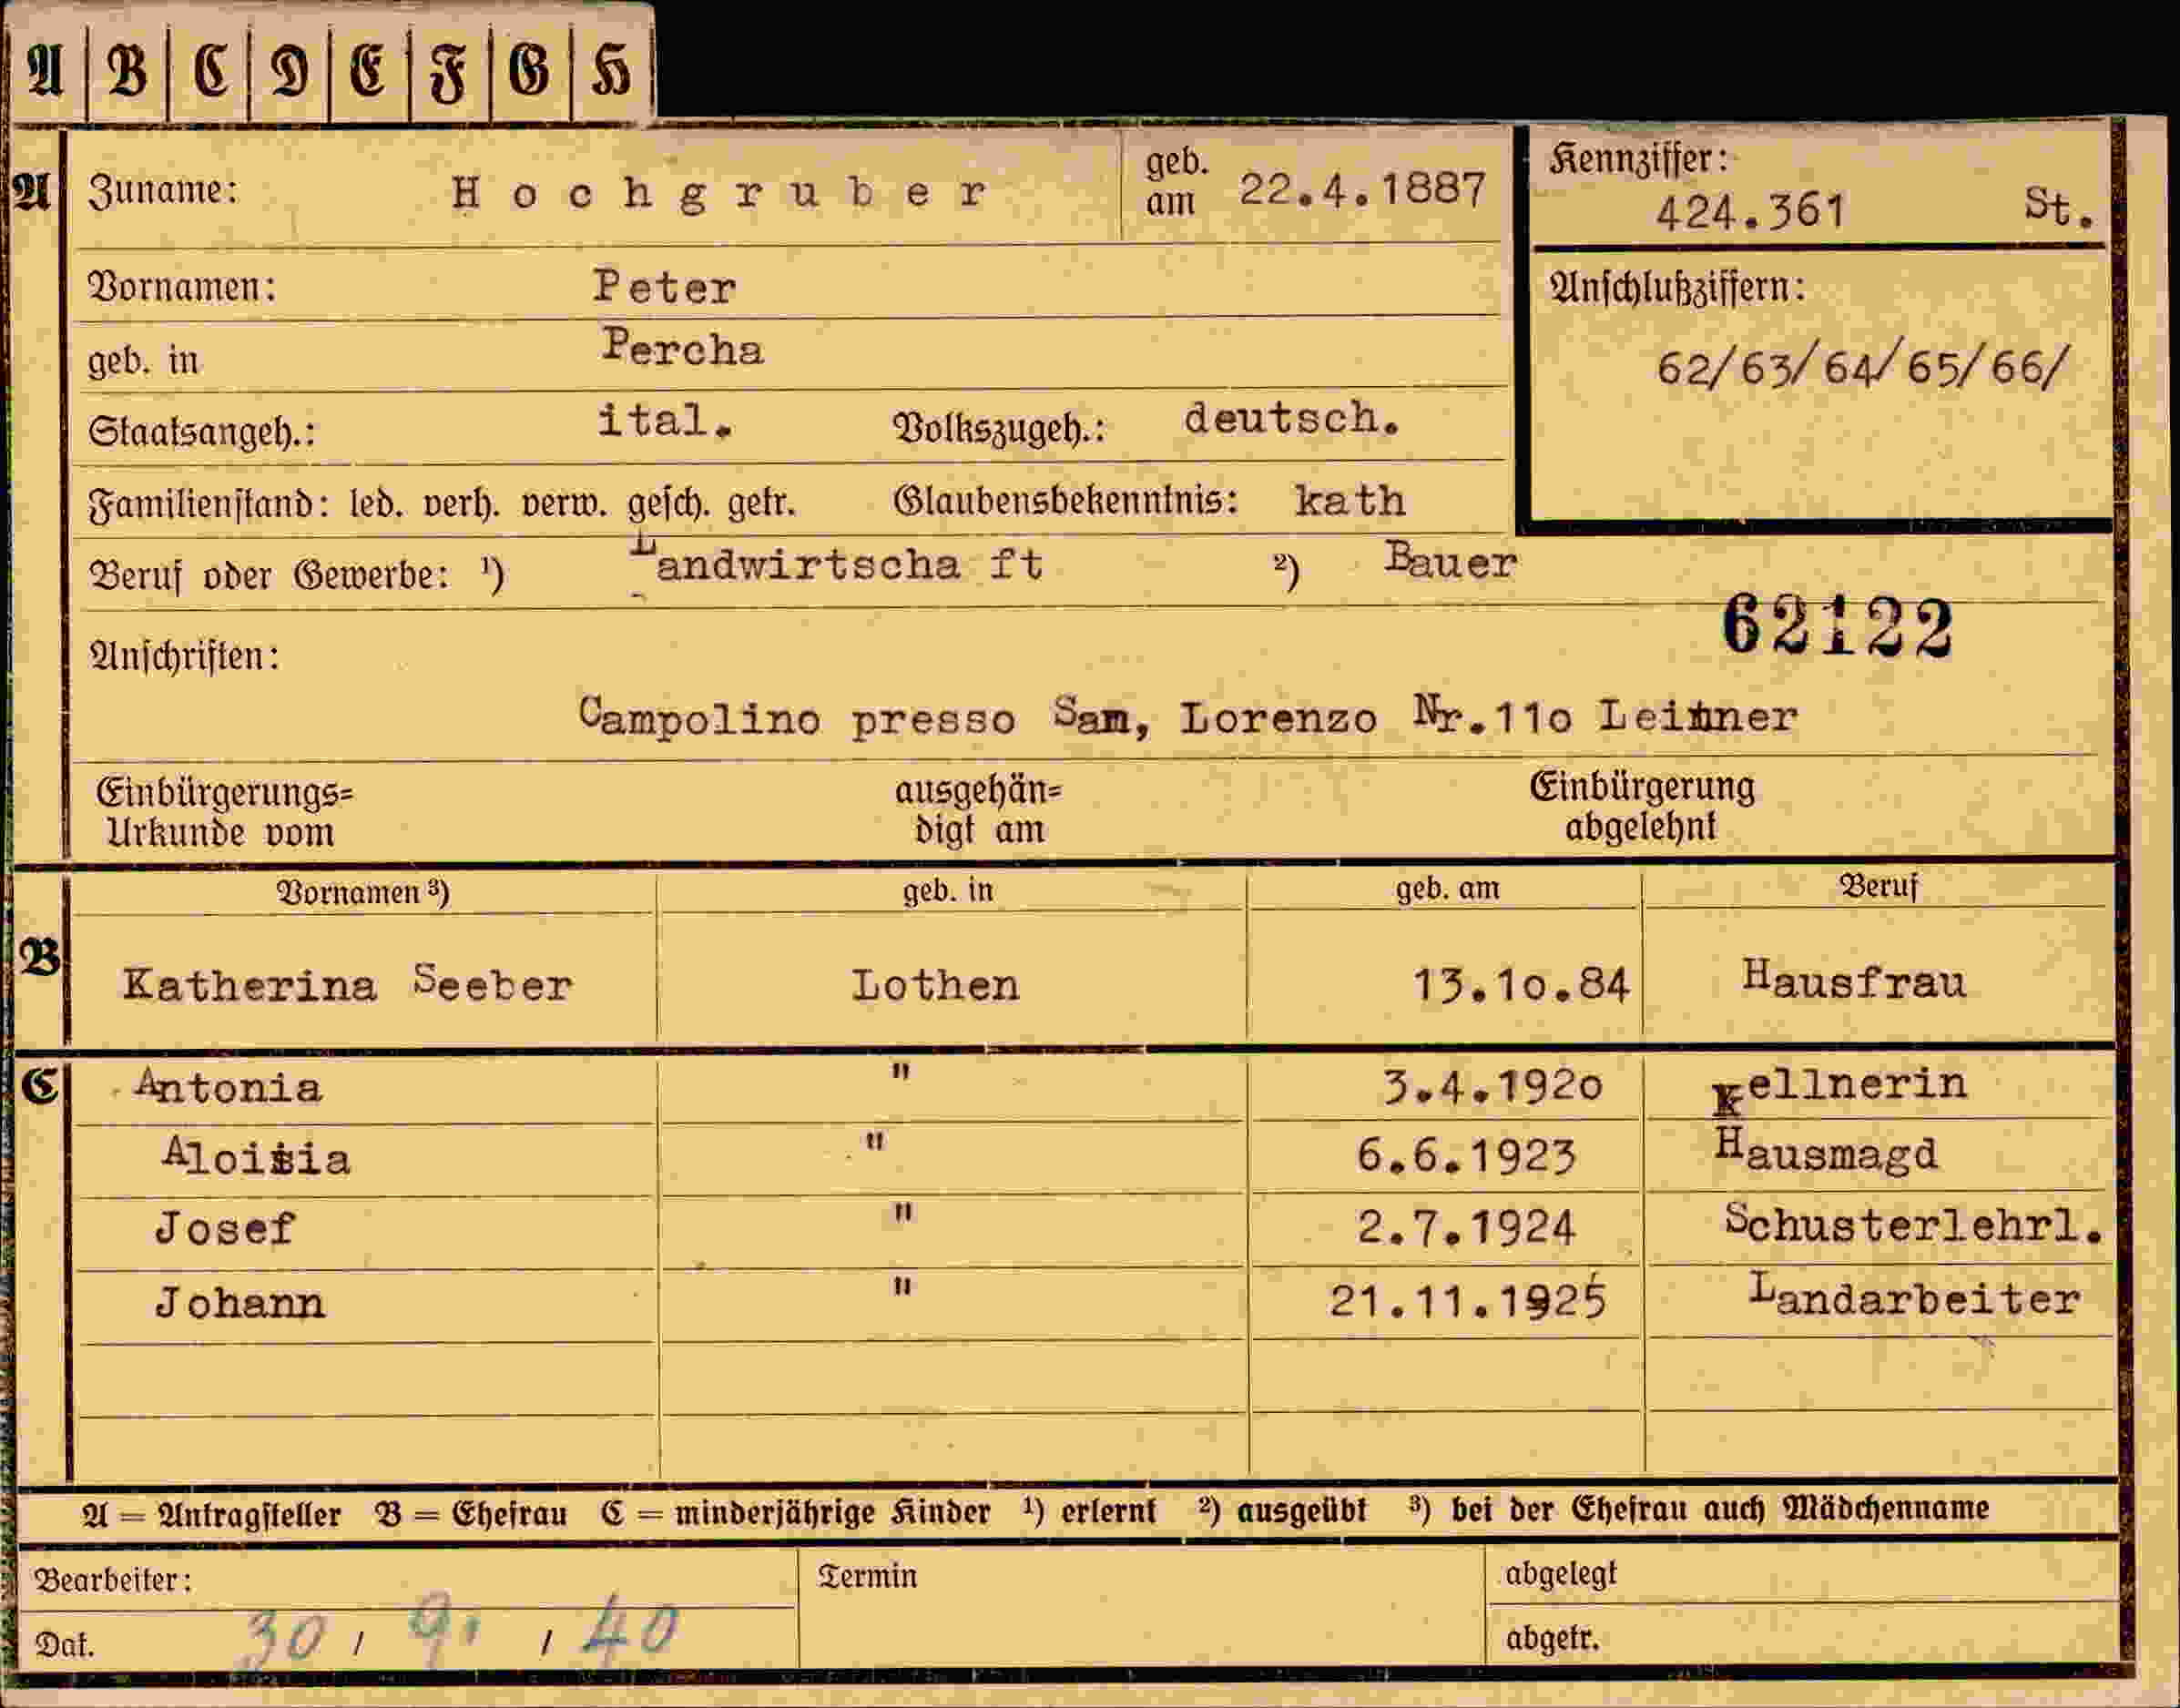 A B C D E F G H
A Zuname: Hochgruber geb. am 22.4.1887
Kennziffer:
424.361 St.
Vornamen: Peter
geb. in Percha
Anschlußziffern:
62/63/64/65/66/
Staatsangeh.: ital. Volkszugeh.: deutsch.
Familienstand: led. verh. verw. gesch. getr. Glaubensbekenntnis: kath
Beruf oder Gewerbe: ¹) Landwirtscha ft ²) Bauer
62122
Anschriften:
Campolino presso San, Lorenzo Nr.11o Leitner
Einbürgerungs= ausgehän= Einbürgerung
Urkunde vom digt am abgelehnt
Vornamen ³) geb. in geb. am Beruf
B Katherina Seeber Lothen 13.1o.84 Hausfrau
C Antonia " 3.4.192o Kellnerin
Aloisia " 6.6.1923 Hausmagd
Josef " 2.7.1924 Schusterlehrl.
Johann " 21.11.1925 Landarbeiter
A = Antragsteller B = Ehefrau C = minderjährige Kinder ¹) erlernt ²) ausgeübt ³) bei der Ehefrau auch Mädchenname
Bearbeiter: Termin abgelegt
Dat. 30 / 9. / 40 abgetr.